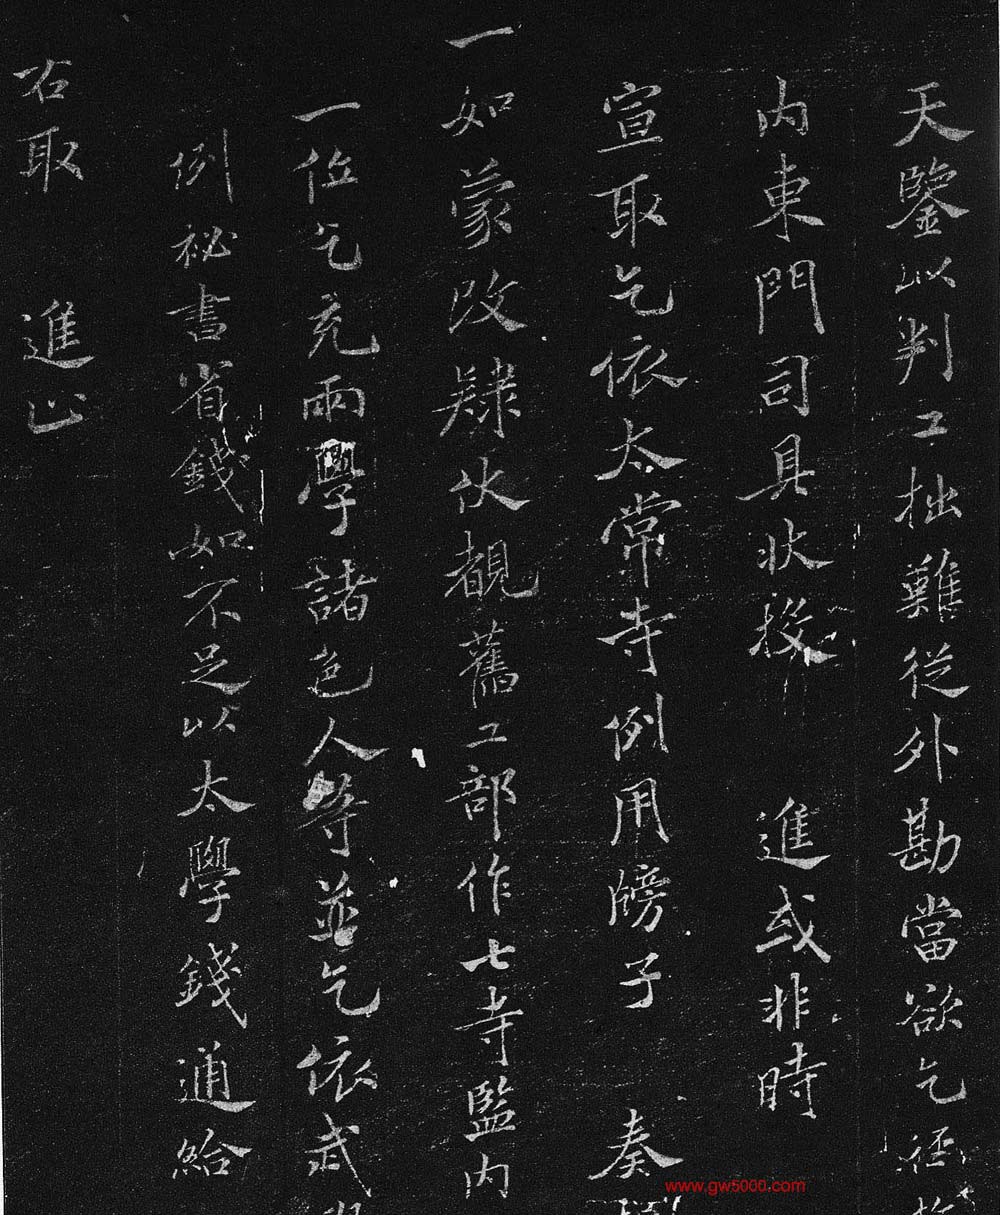 天鑒以判工拙難從外勘當欲乞徑
内東門司具狀投 進或非時
宣取乞依太常寺例用牓子 奏
一如蒙改肄伏觀舊工部作七寺監内
一位乞充兩學諸色人等並乞依武
例祕書省錢如不足以太學錢通給
右取 進止
www.gw5000.com